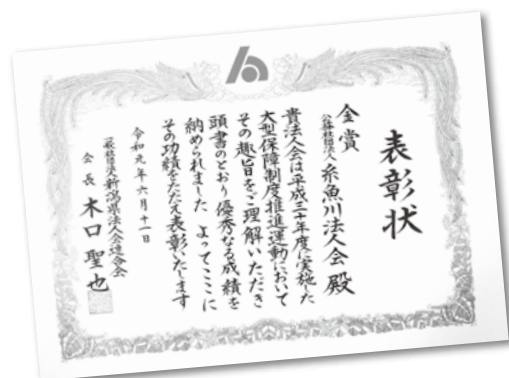 表彰状
金賞
公益社団法人 糸魚川法人会 殿
貴法人会は平成三十年度に実施した
大型保障制度推進運動において
その趣旨をご理解いただき
頭書のとおり優秀なる成績を
納められました よってここに
その功績をたたえ表彰いたします
令和元年六月十一日
一般社団法人 新潟県法人会連合会
会長 木口 聖也